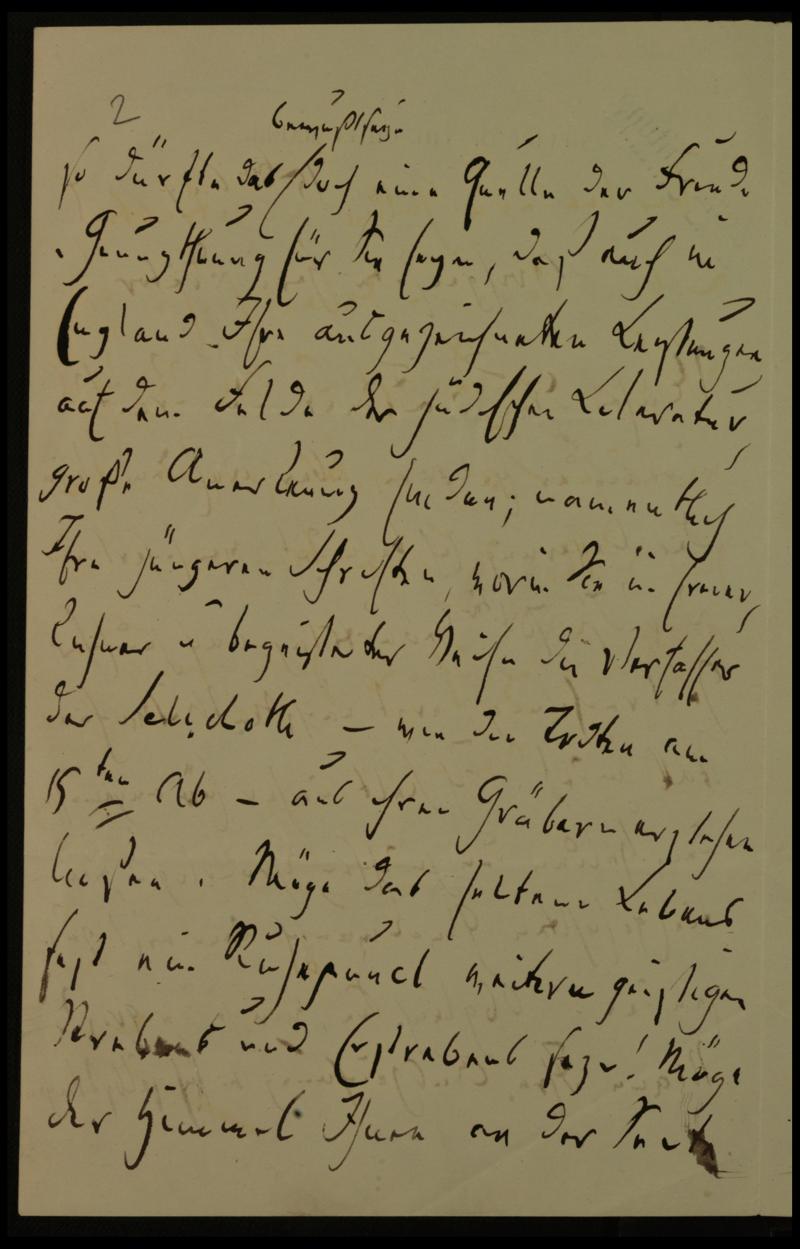 2
Bewußtseyn
so dürfte das doch eine Quelle der Freude
u. Genugthuung für Sie seyn, daß auch in
England Ihre ausgezeichneten Leistungen
auf dem Felde der jüdischen Literatur,
große Anerkennung finden; namentlich
Ihre jüngeren Schriften, worin Sie in
kühner u begeisterter Weise die Verfasser
der Selichoth – wie die Todten am
15ten Ab – aus ihren Gräbern erstehen
ließen. Möge das seltene Lebens
fest ein Ruhepunct weitern geistigen
Strebens und Erstrebens seyn! Möge
der Himmel Ihnen an der Seite